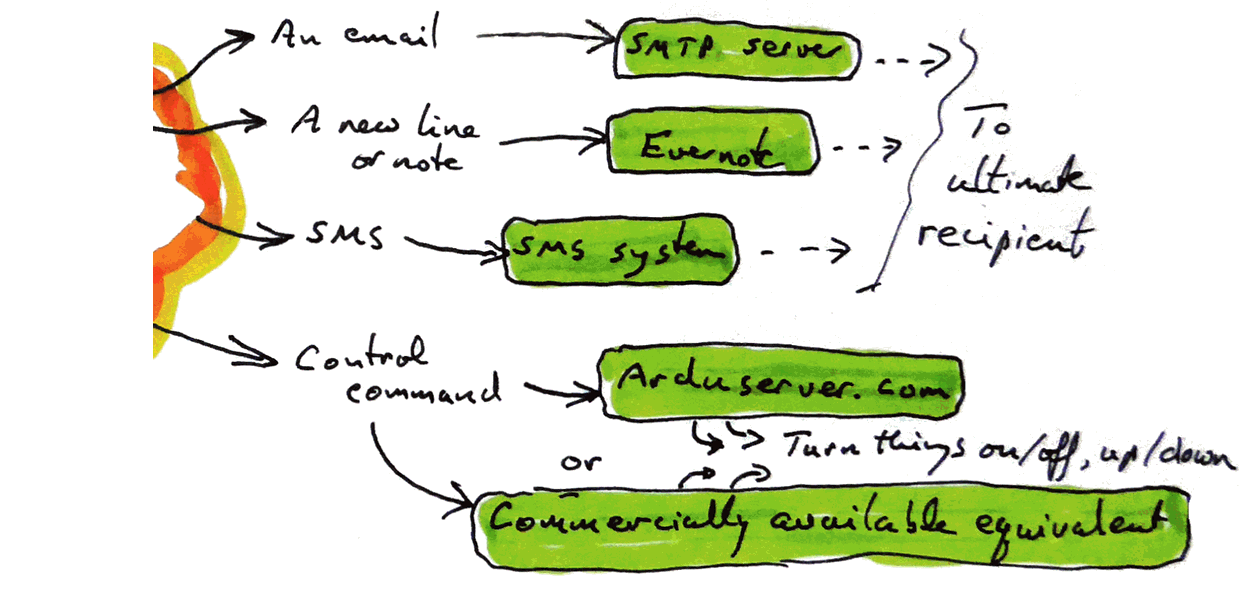 An email
SMTP server
A new line
or note
Evernote
To
ultimate
recipient
SMS
SMS system
Control
command
Arduserver.com
Turn things on/off, up/down
or
Commercially available equivalent